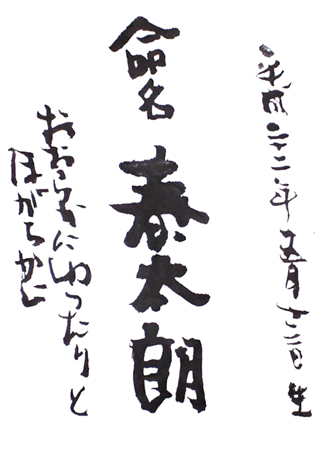 平成二十二年五月十二日生
命名
泰太朗
おおらかにゆったりと
ほがらかに